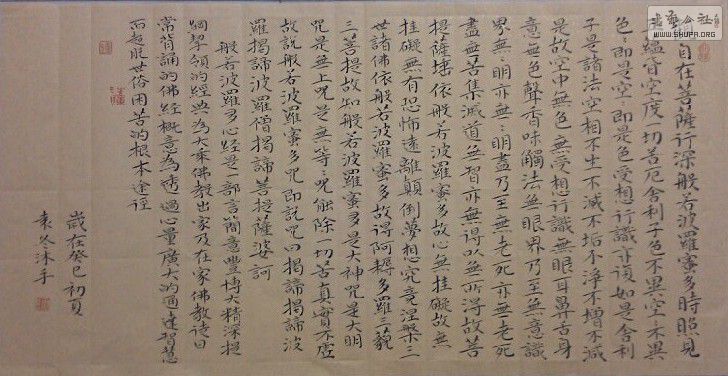 自在菩薩行深般若波羅蜜多時照見
蘊皆空度一切苦厄舍利子色不異空〻不異
色〻即是空〻即是色受想行識亦復如是舍利
子是諸法空相不生不滅不垢不淨不增不減
是故空中無色無受想行識無眼耳鼻舌身
意無色聲香味觸法無眼界乃至無意識
界無〻明亦無〻明盡乃至無老死亦無老死
盡無苦集滅道無智亦無得以無所得故菩
提薩埵依般若波羅蜜多故心無挂礙故無
挂礙無有恐怖遠離顛倒夢想究竟涅槃三
世諸佛依般若波羅蜜多故得阿耨多羅三藐
三菩提故知般若波羅蜜多是大神咒是大明
咒是無上咒是無等〻咒能除一切苦真實不虛
故說般若波羅蜜多咒即說咒曰揭諦揭諦波
羅揭諦波羅僧揭諦菩提薩婆訶
般若波羅多心經是一部言簡意豐博大精深提
綱挈領的經典為大乘佛教出家及在家佛教徒日
常背誦的佛經概意為透過心量廣大的通達智慧
而超脫世俗困苦的根本途徑
歲在癸巳初夏
袁冬沐手
公社
WWW.SHUFA.ORG